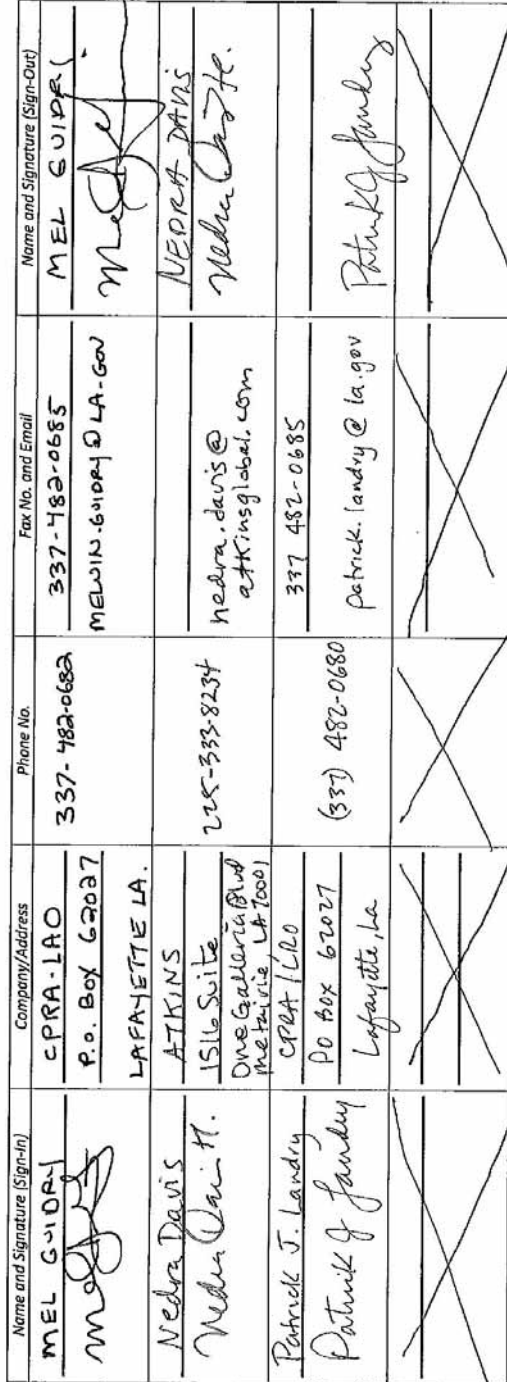 Name and Signature (Sign-In)
Company/Address
Phone No.
Fax No. and Email
Name and Signature (Sign-Out)
MEL GUIDRY
CPRA-LAO
P.O. Box 62027
LAFAYETTE LA.
337-482-0682
337-482-0685
MELVIN.GUIDRY@LA-GOV
MEL GUIDRY
Nedra Davis
Nedra Davis
ATKINS
1516 Suite
One Galleria Blvd
Metairie, LA 70001
225-333-8234
nedra.davis@
atkinsglobal.com
NEDRA DAVIS
Nedra Davis
Patrick J. Landry
Patrick J Landry
CPRA/LRO
PO BOX 62027
Lafayette, La
(337) 482-0680
337 482-0685
patrick.landry@la.gov
Patrick J Landry